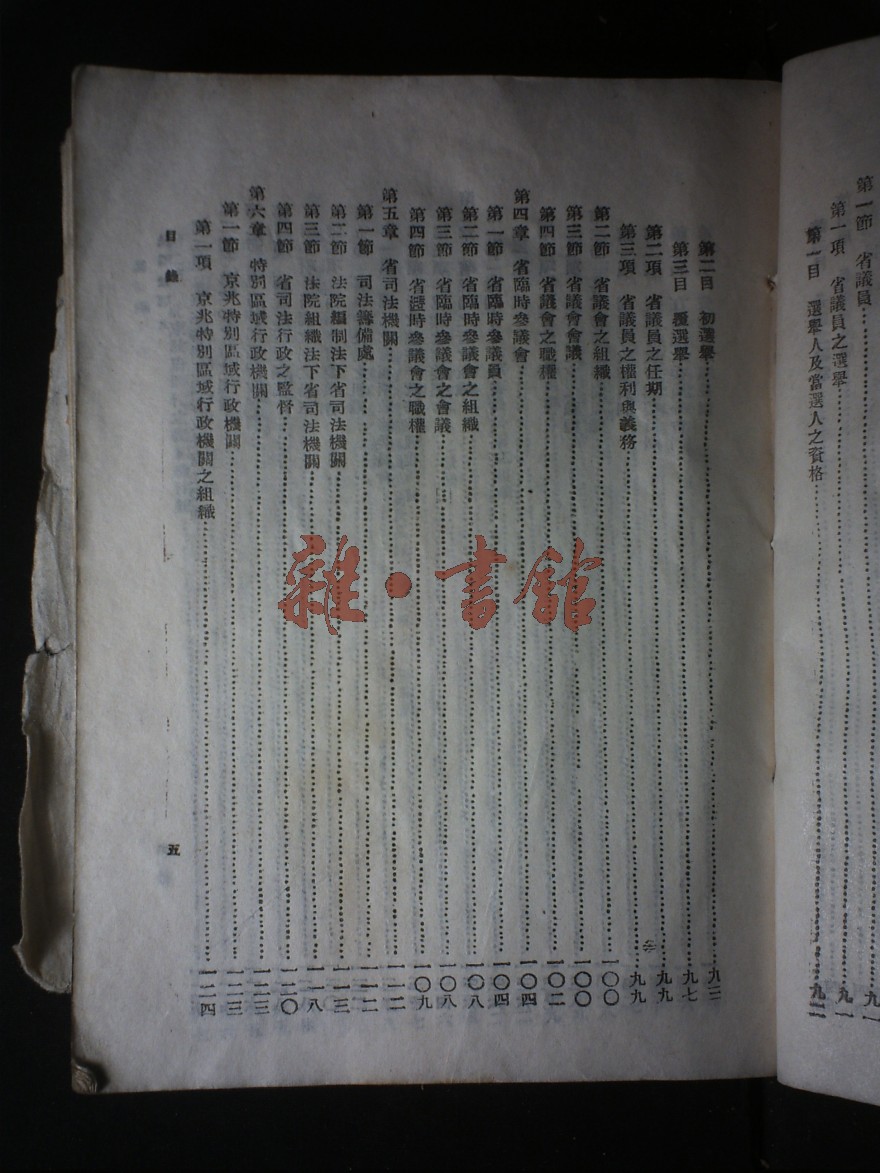 第一節 省議員……九一
第一項 省議員之選舉……九一
第一目 選舉人及當選人之資格……九二
第二目 初選舉……九三
第三目 覆選舉……九七
第二項 省議員之任期……九九
第三項 省議員之權利與義務……九九
第二節 省議會之組織……一〇〇
第三節 省議會會議……一〇〇
第四節 省議會之職權……一〇二
第四章 省臨時參議會……一〇四
第一節 省臨時參議員……一〇四
第二節 省臨時參議會之組織……一〇八
第三節 省臨時參議會之會議……一〇八
第四節 省臨時參議會之職權……一〇九
第五章 省司法機關……一一二
第一節 司法籌備處……一一二
第二節 法院編制法下省司法機關……一一三
第三節 法院組織法下省司法機關……一一八
第四節 省司法行政之監督……一二〇
第六章 特別區域行政機關……一二三
第一節 京兆特別區域行政機關……一二三
第一項 京兆特別區域行政機關之組織……一二四
目錄 五
雜·書館